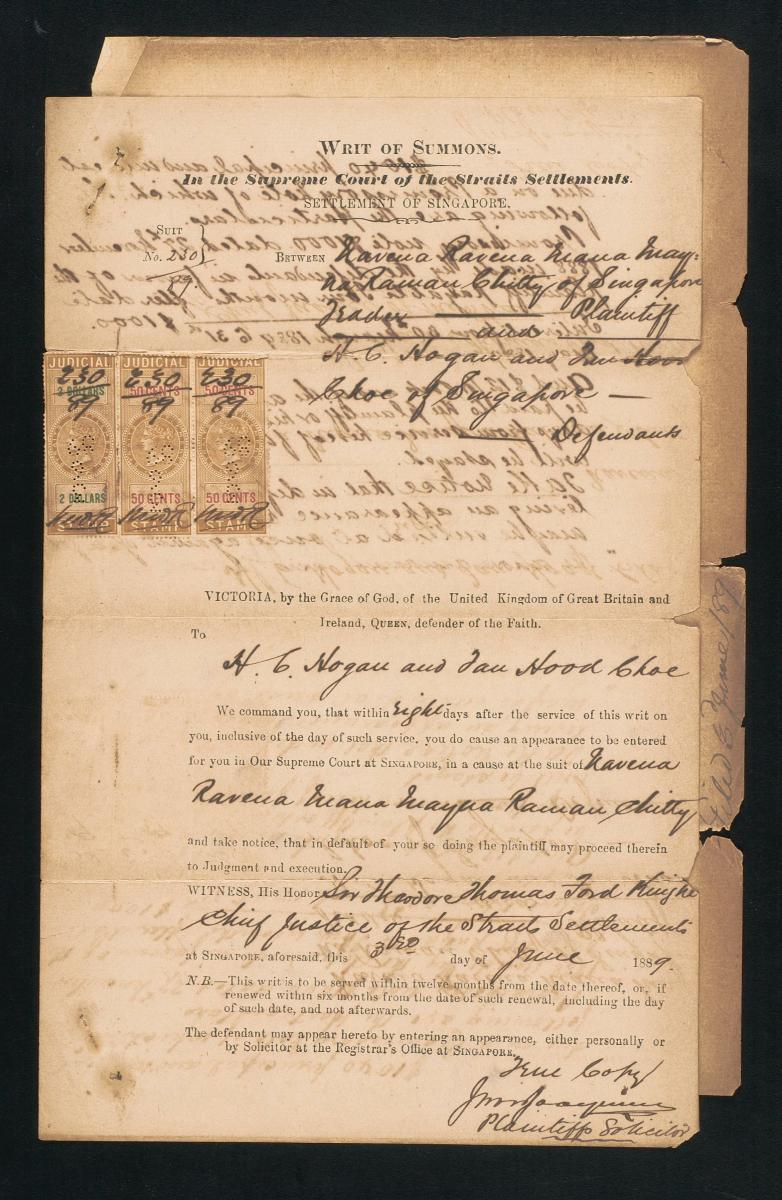 WRIT OF SUMMONS.
In the Supreme Court of the Straits Settlements.
SETTLEMENT OF SINGAPORE.
SUIT
No. 230
89
BETWEEN Navena Ravena Mana May-
na Raman Chitty of Singapore
Trader Plaintiff
and
H. C. Hogan and Tan Hood
Choe of Singapore
Defendants
JUDICIAL JUDICIAL JUDICIAL
230 230 230
2 DOLLARS 50 CENTS 50 CENTS
89 89 89
2 DOLLARS 50 CENTS 50 CENTS
STAMP STAMP STAMP
VICTORIA, by the Grace of God, of the United Kingdom of Great Britain and
Ireland, QUEEN, defender of the Faith.
To
H. C. Hogan and Tan Hood Choe
We command you, that within Eight days after the service of this writ on
you, inclusive of the day of such service, you do cause an appearance to be entered
for you in Our Supreme Court at SINGAPORE, in a cause at the suit of Navena
Ravena Mana Mayna Raman Chitty
and take notice, that in default of your so doing the plaintiff may proceed therein
to Judgment and execution.
WITNESS, His Honor Sir Theodore Thomas Ford Knight
Chief Justice of the Straits Settlements
at SINGAPORE, aforesaid, this 3RD day of June 1889.
N.B.—This writ is to be served within twelve months from the date thereof, or, if
renewed within six months from the date of such renewal, including the day
of such date, and not afterwards.
The defendant may appear hereto by entering an appearance, either personally or
by Solicitor at the Registrar's Office at SINGAPORE.
True Copy
Plaintiffs Solicitor
Filed 6 June/89